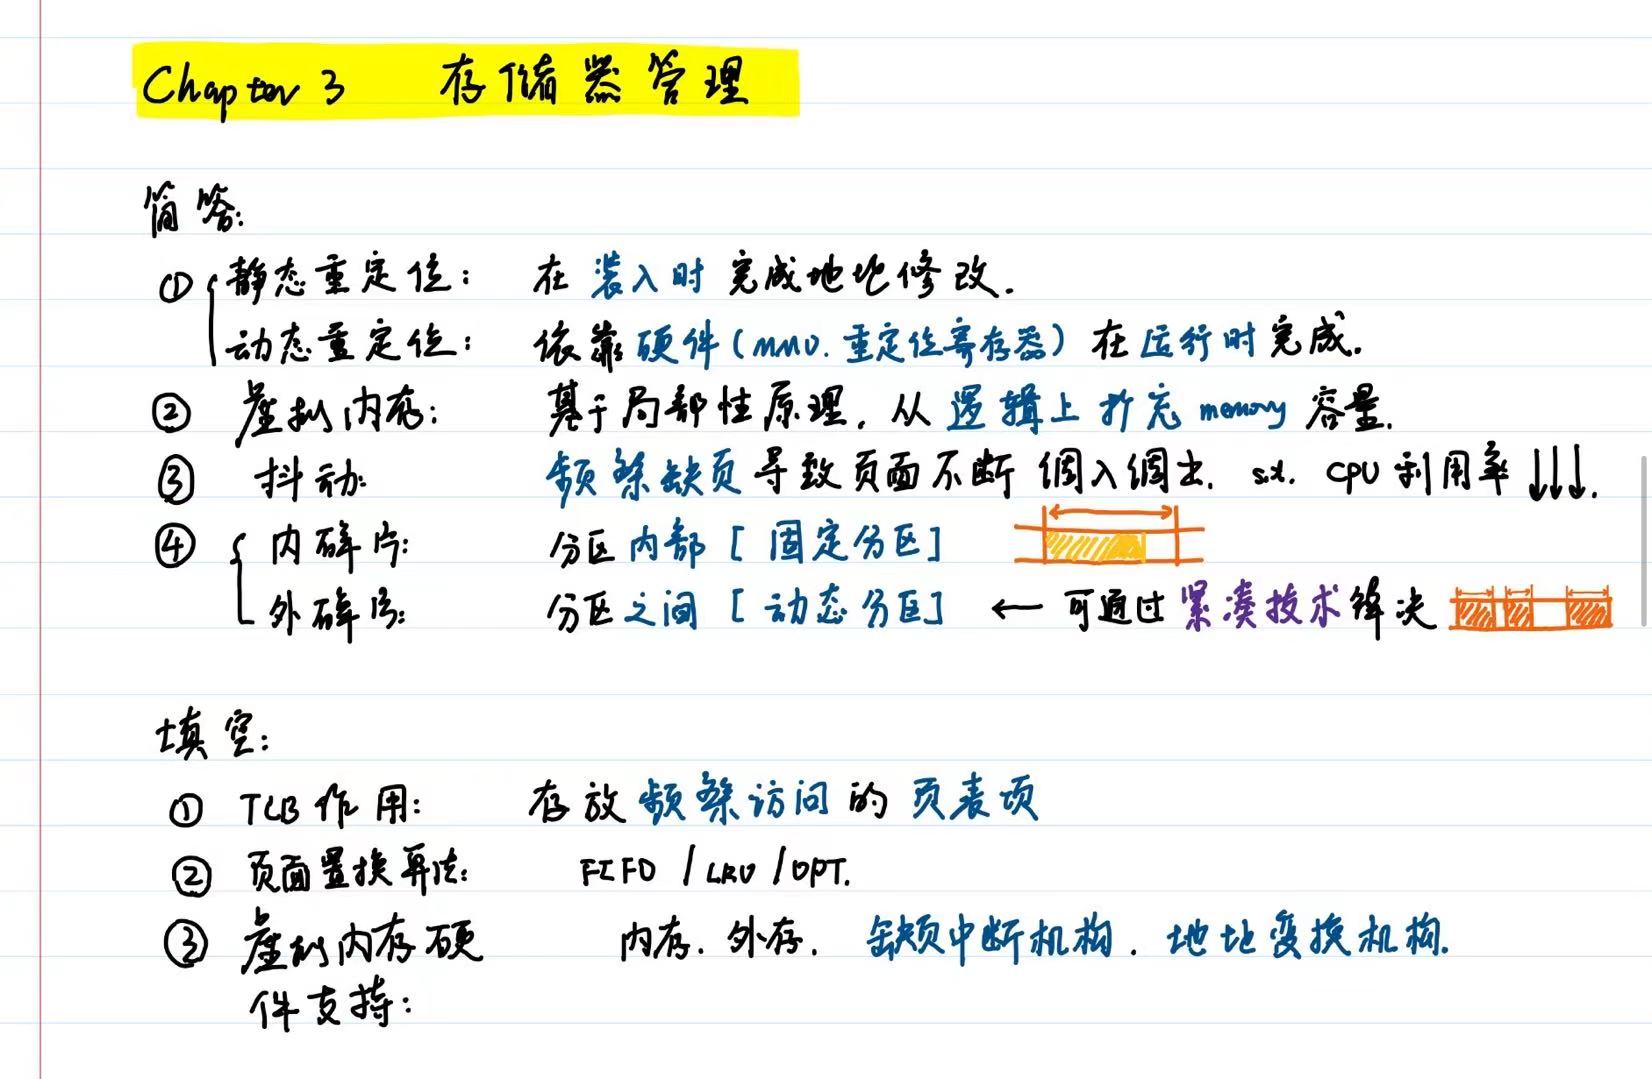 Chapter 3 存储器管理
简答:
① 静态重定位: 在装入时完成地址修改.
动态重定位: 依靠硬件(MMU.重定位寄存器)在运行时完成.
② 虚拟内存: 基于局部性原理, 从逻辑上扩充memory容量.
③ 抖动: 频繁缺页导致页面不断调入调出. s.t. CPU利用率↓↓↓.
④ 内碎片: 分区内部[固定分区]
外碎片: 分区之间[动态分区] ← 可通过紧凑技术解决
填空:
① TLB作用: 存放频繁访问的页表项
② 页面置换算法: FIFO / LRU / OPT.
③ 虚拟内存硬 内存. 外存. 缺页中断机构. 地址变换机构.
件支持: